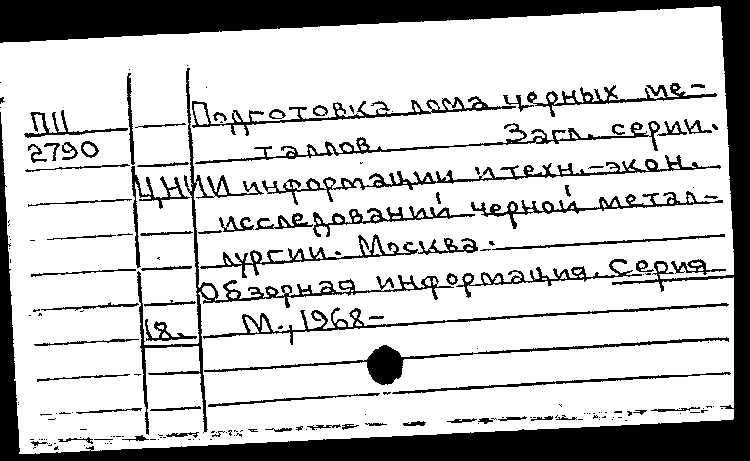 Подготовка лома черных ме-
ПII
таллов. Загл. серии.
2790
ЦНИИ информации и техн.-экон.
исследований черной метал-
лургии. Москва.
Обзорная информация. Серия
18. М., 1968-